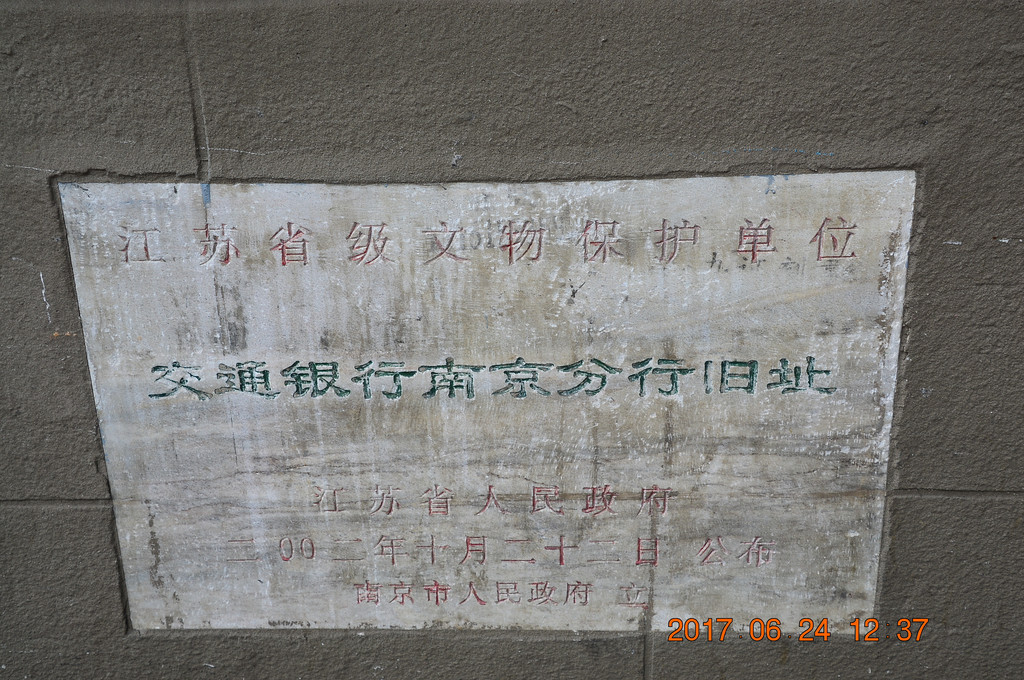 江苏省级文物保护单位
交通银行南京分行旧址
江苏省人民政府
二00二年十月二十二日 公布
南京市人民政府 立
2017 06 24 12 37